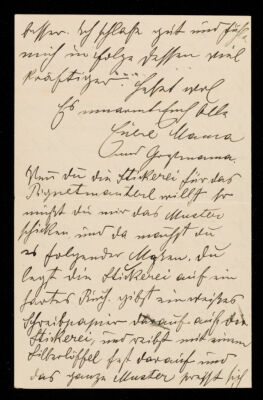 besser. Ich schlafe gut und fühle
mich in Folge dessen viel
kräftiger. Jetzt wol
Es umarmt Euch Alle
Eüere Mama
und Großmama.
Wenn du die Stickerei für das
Piquetmanterl willst so
mußt du mir das Muster
schicken und da machst du
es folgender Maßen. Du
legst die Stickerei auf ein
hartes Buch. gibst ein weißes
Schreibpapier darauf auf die
Stickerei, und reibst mit einem
Silberlöffel fest darauf und
das ganze Muster preßt sich